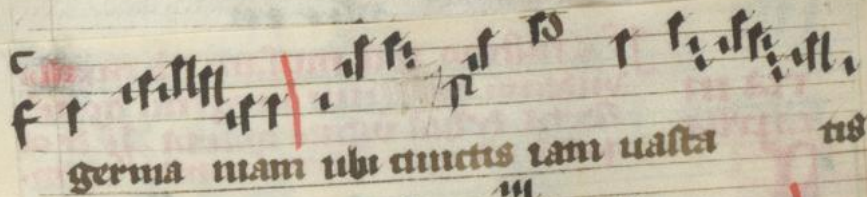 c
f
germa niam ubi cunctis iam uasta tis